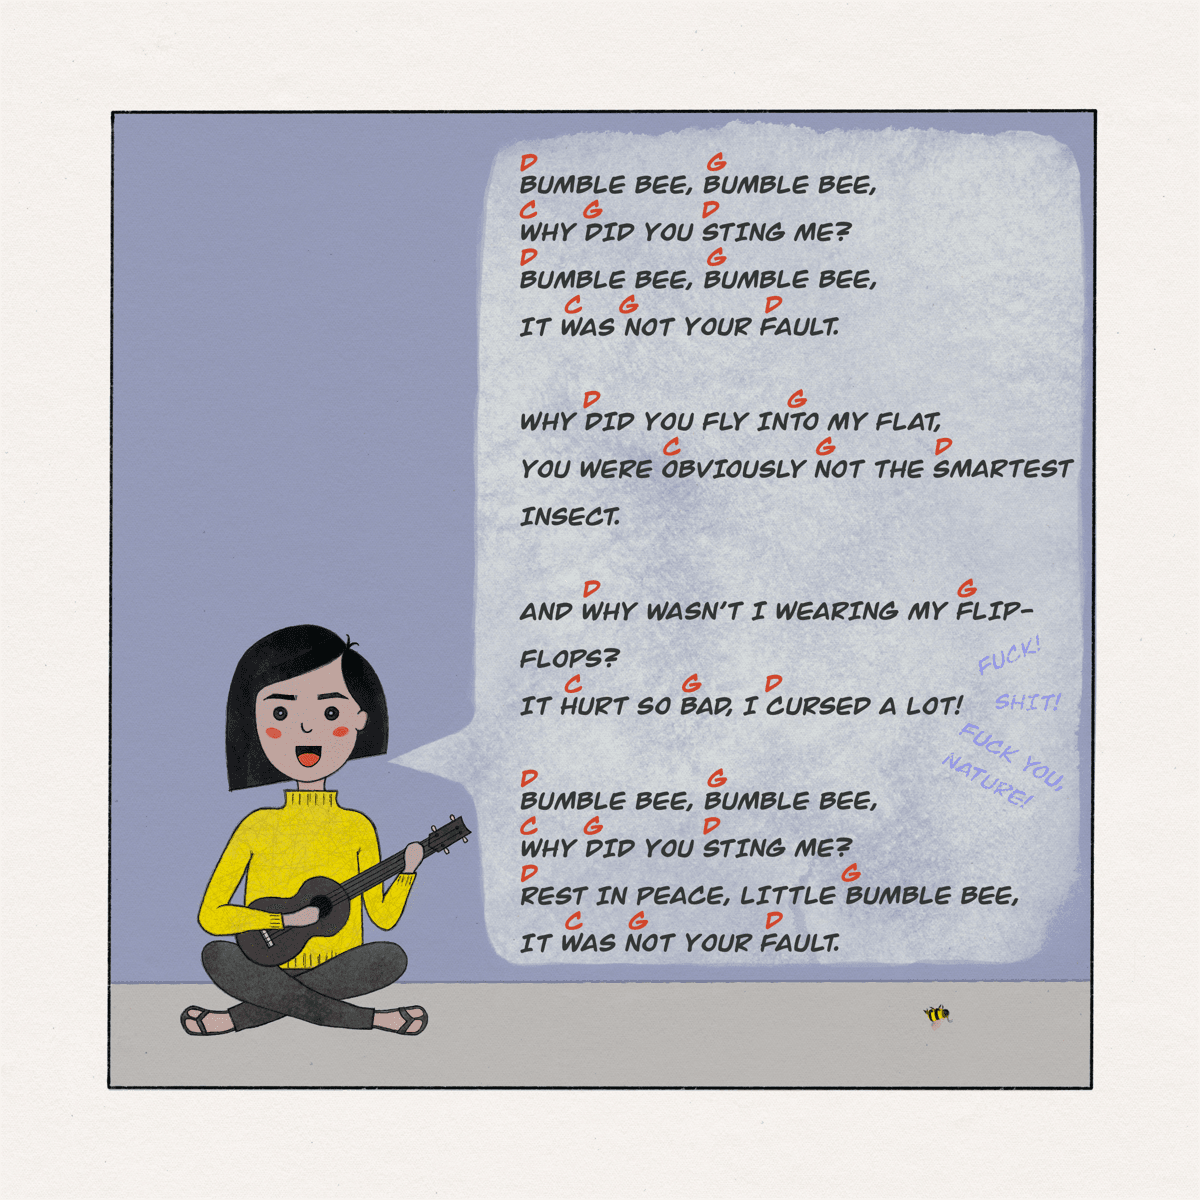 D G
BUMBLE BEE, BUMBLE BEE,
C G D
WHY DID YOU STING ME?
D G
BUMBLE BEE, BUMBLE BEE,
C G D
IT WAS NOT YOUR FAULT.
D G
WHY DID YOU FLY INTO MY FLAT,
C G D
YOU WERE OBVIOUSLY NOT THE SMARTEST
INSECT.
D G
AND WHY WASN'T I WEARING MY FLIP-
FLOPS?
C G D
IT HURT SO BAD, I CURSED A LOT!
FUCK!
SHIT!
FUCK YOU,
NATURE!
D G
BUMBLE BEE, BUMBLE BEE,
C G D
WHY DID YOU STING ME?
D G
REST IN PEACE, LITTLE BUMBLE BEE,
C G D
IT WAS NOT YOUR FAULT.